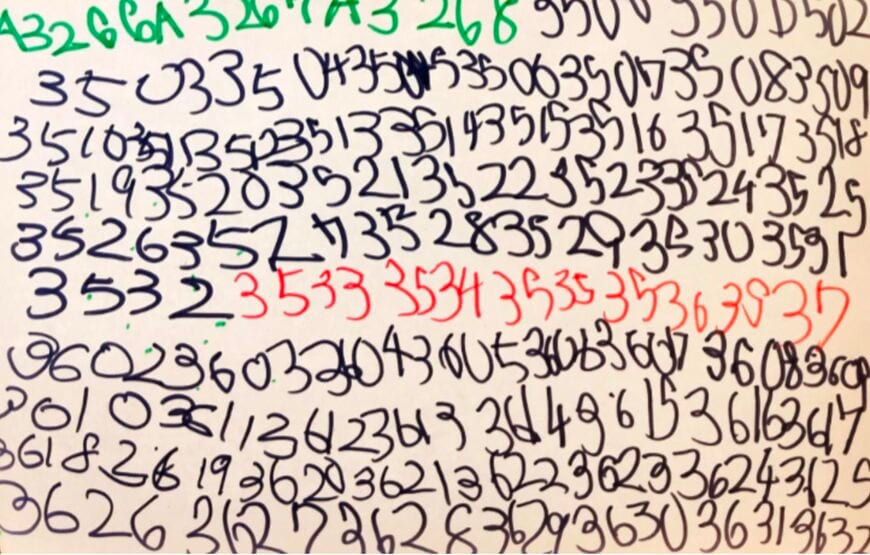 A3266A3267A3268 3500 3501 3502
350335043505350635073508 3509
351035113512351335143515351635173518
3519352035213522352335243525
3526352773528352935303531
3532 3533 3534 3535 3536 3537
36023603360436053606360736083609
3610361136123613361436153616 3617
3618 2619 36203621362236233624 3125
3626 3627362836293630 36313632